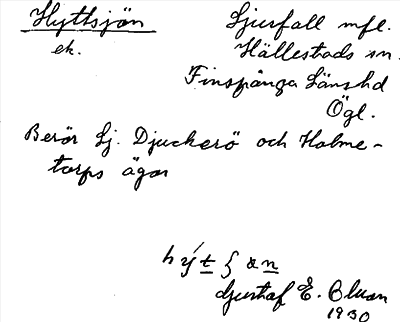 Hyttsjön
ek.
Ljusfall mfl.
Hällestads sn.
Finspånga Länshd
Ögl.
Berör Lj. Djuckerö och Holme-
torps ägor
Gustaf E.
1930